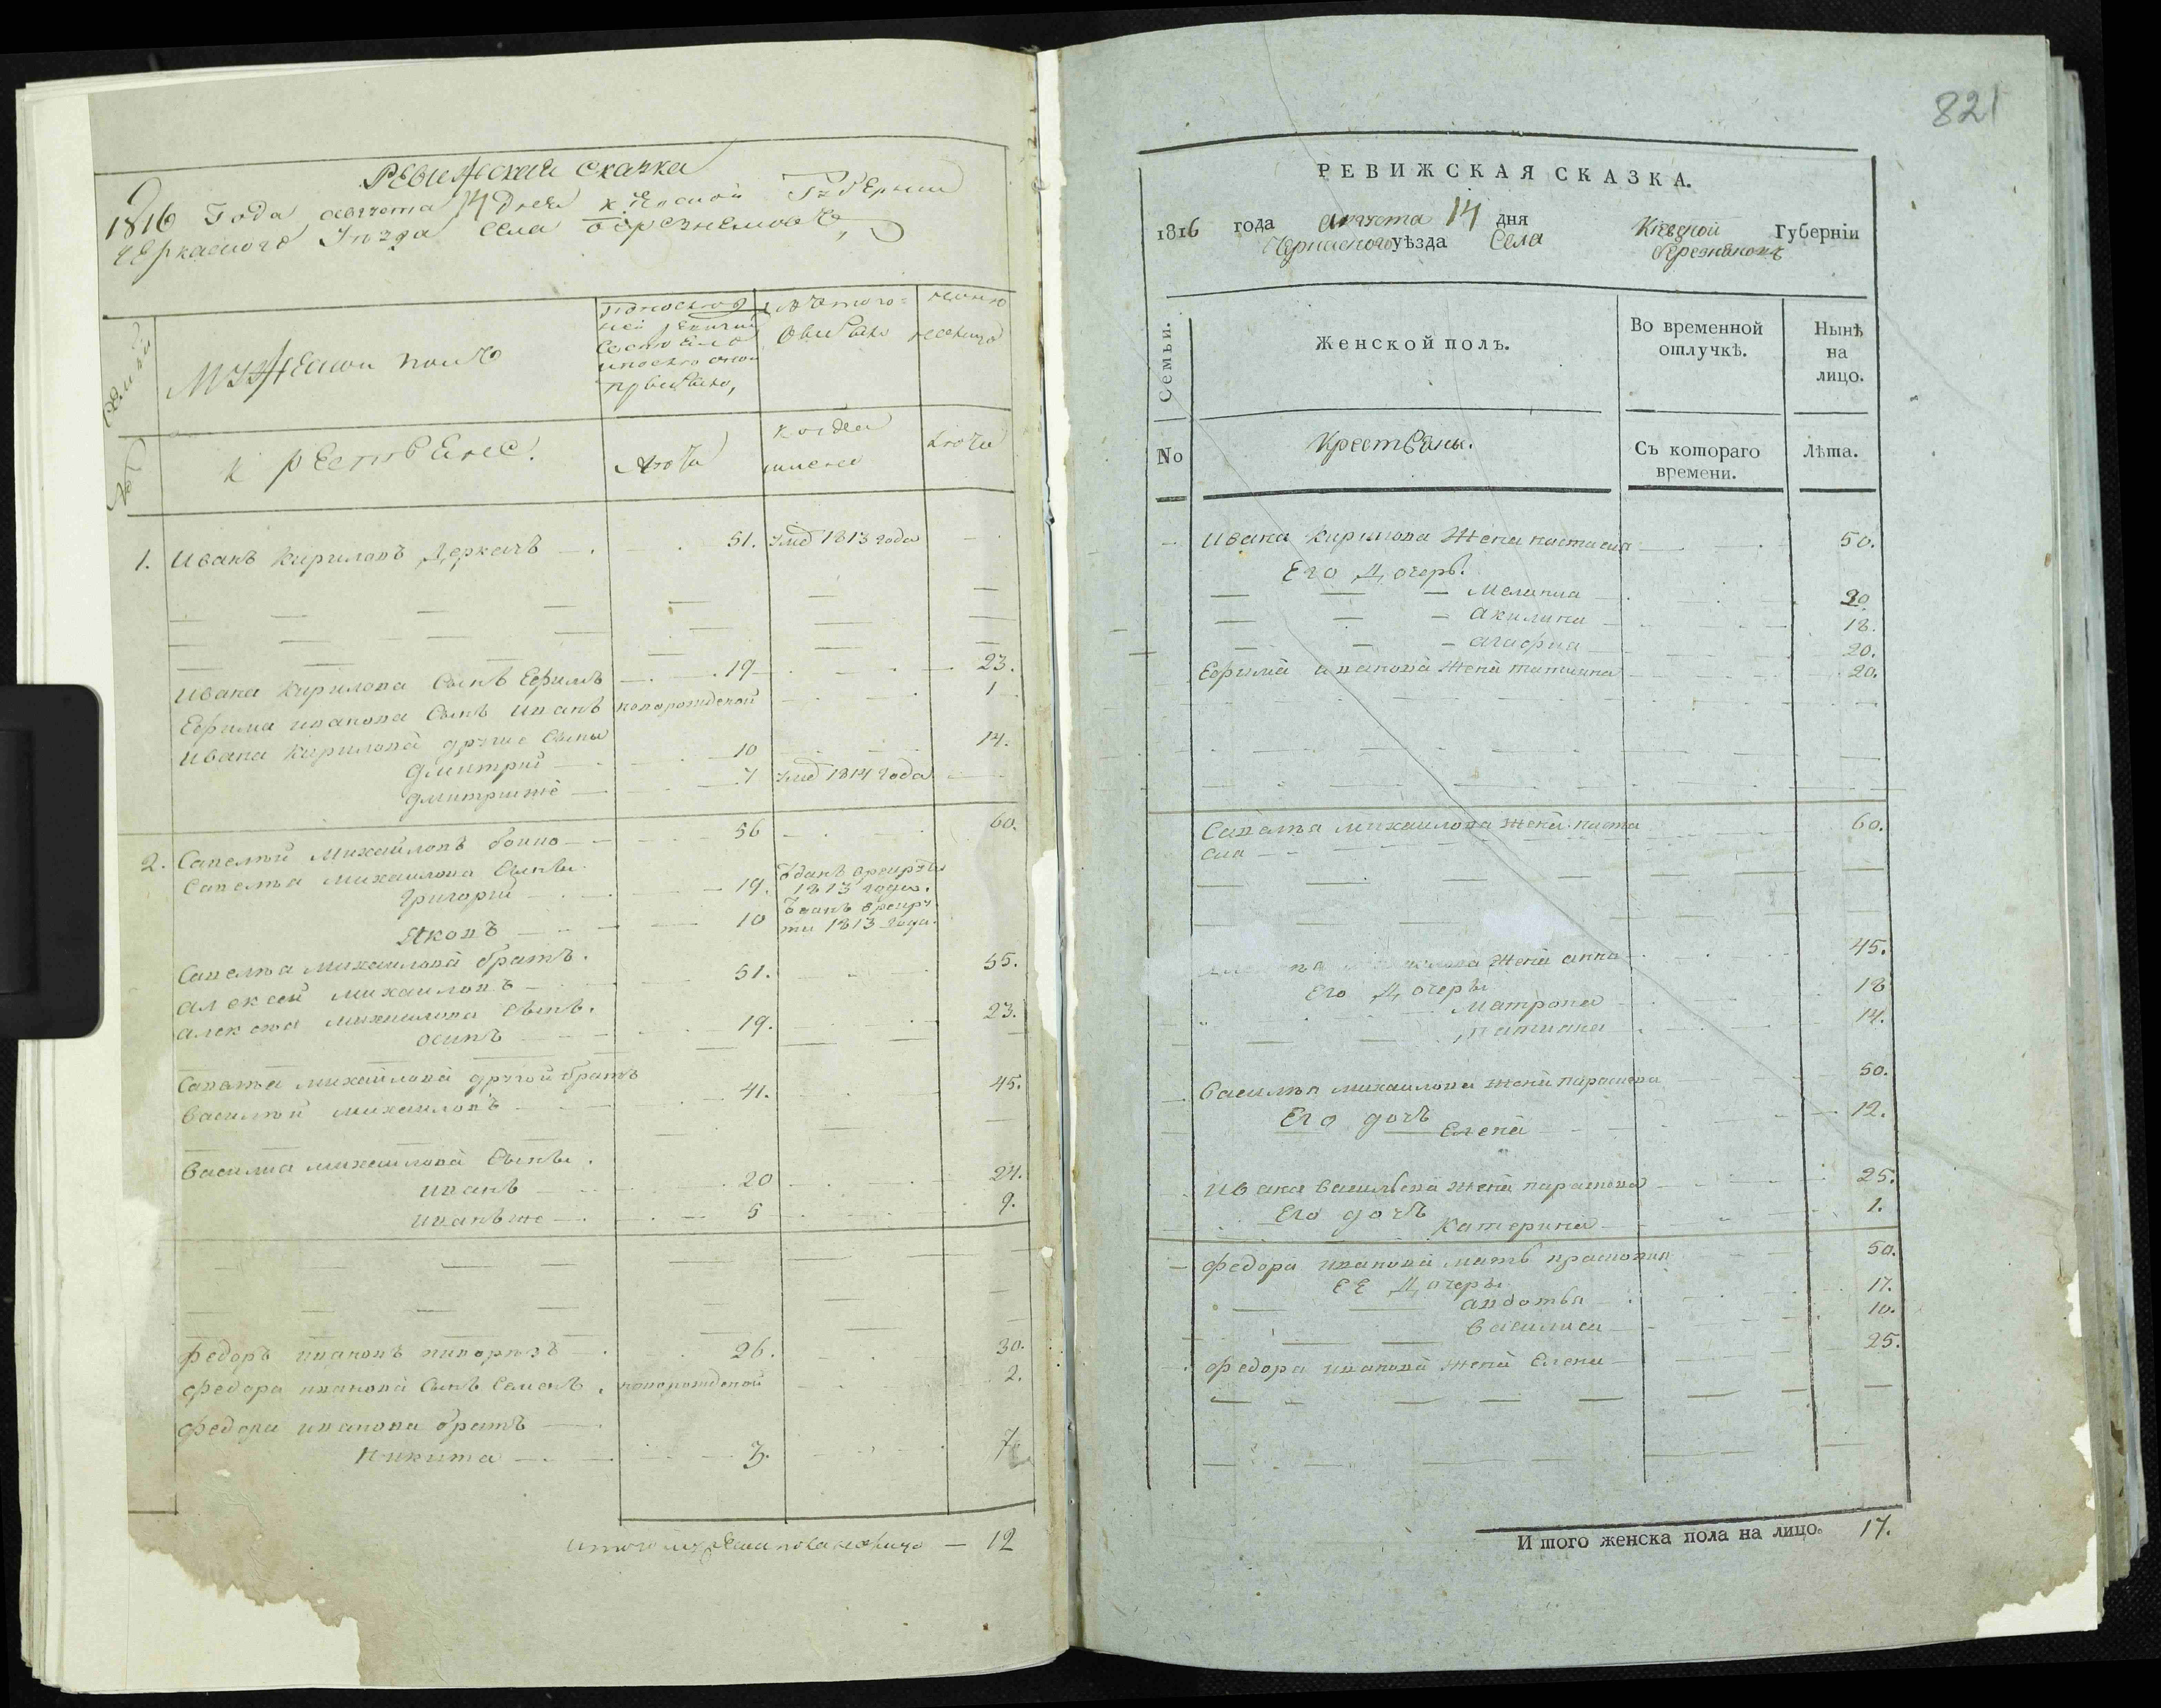 Ревижская сказка
1816 Года августа 14 дня Кіевской Губернии
Черкаского уезда села Березняковъ
Семьи
Мужеской полъ
По последней ревизіи состояло и после оной прибыло,
Изъ того числа выбыло
Ныне на лицо
№
Крестьяне.
Лета
Когда имянно
Лета
1. Иванъ Кириловъ Деркачъ 51. умер 1813 года
Ивана Кирилова Сынъ Ефимъ 19 23.
Ефима Иванова Сынъ Иванъ новорожденой 1
Ивана Кирилова другие Сыны
Дмитрий 10 14.
Дмитрий же 7 умер 1814 года
2. Савелий Михайловъ 56 60.
Савелия Михайлова Сыны
Григорий 19. Отданъ в рекруты 1813 года.
Яковъ 10 Отданъ в рекруты 1813 года.
Савелия Михайлова братъ.
Алексей Михайловъ 51. 55.
Алексея Михайлова Сынъ.
Осипъ 19. 23.
Савелия Михайлова другой братъ
Василий Михайловъ 41. 45.
Василия Михайлова Сыны.
Иванъ 20 24.
Иванъ же 5 9.
Федоръ Ивановъ 26. 30.
Федора Иванова Сынъ Семенъ. новорожденой 2.
Федора Иванова братъ
Никита 3. 7
Итого мужеска пола на лицо — 12
821
РЕВИЖСКАЯ СКАЗКА.
1816 года августа 14 дня Кіевской Губерніи
Черкаского уѣзда Села Березняковъ
Семьи.
Женской полъ.
Во временной отлучкѣ.
Нынѣ на лицо.
No
Крестьяны.
Съ котораго времени.
Лѣта.
Ивана Кирилова Жена Настасия 50.
Его Дочеръ.
Мелания 30.
Акилина 18.
Агафия 20.
Ефима Иванова Жена Татияна 20.
Савелия Михайлова Жена Наста
сия 60.
Жена Анна 45.
Его Дочеръ
Матрона 18
Татияна 14.
Василия Михайлова Жена Параскева 50.
Его дочъ
Елена 12.
Ивана Васильева Жена Параскева 25.
Его дочъ
Катерина 1.
Федора Иванова мать 50.
Ее Дочеръ
Авдотья 17.
Василиса 10.
Федора Иванова Жена Елена 25.
И того женска пола на лицо. 17.